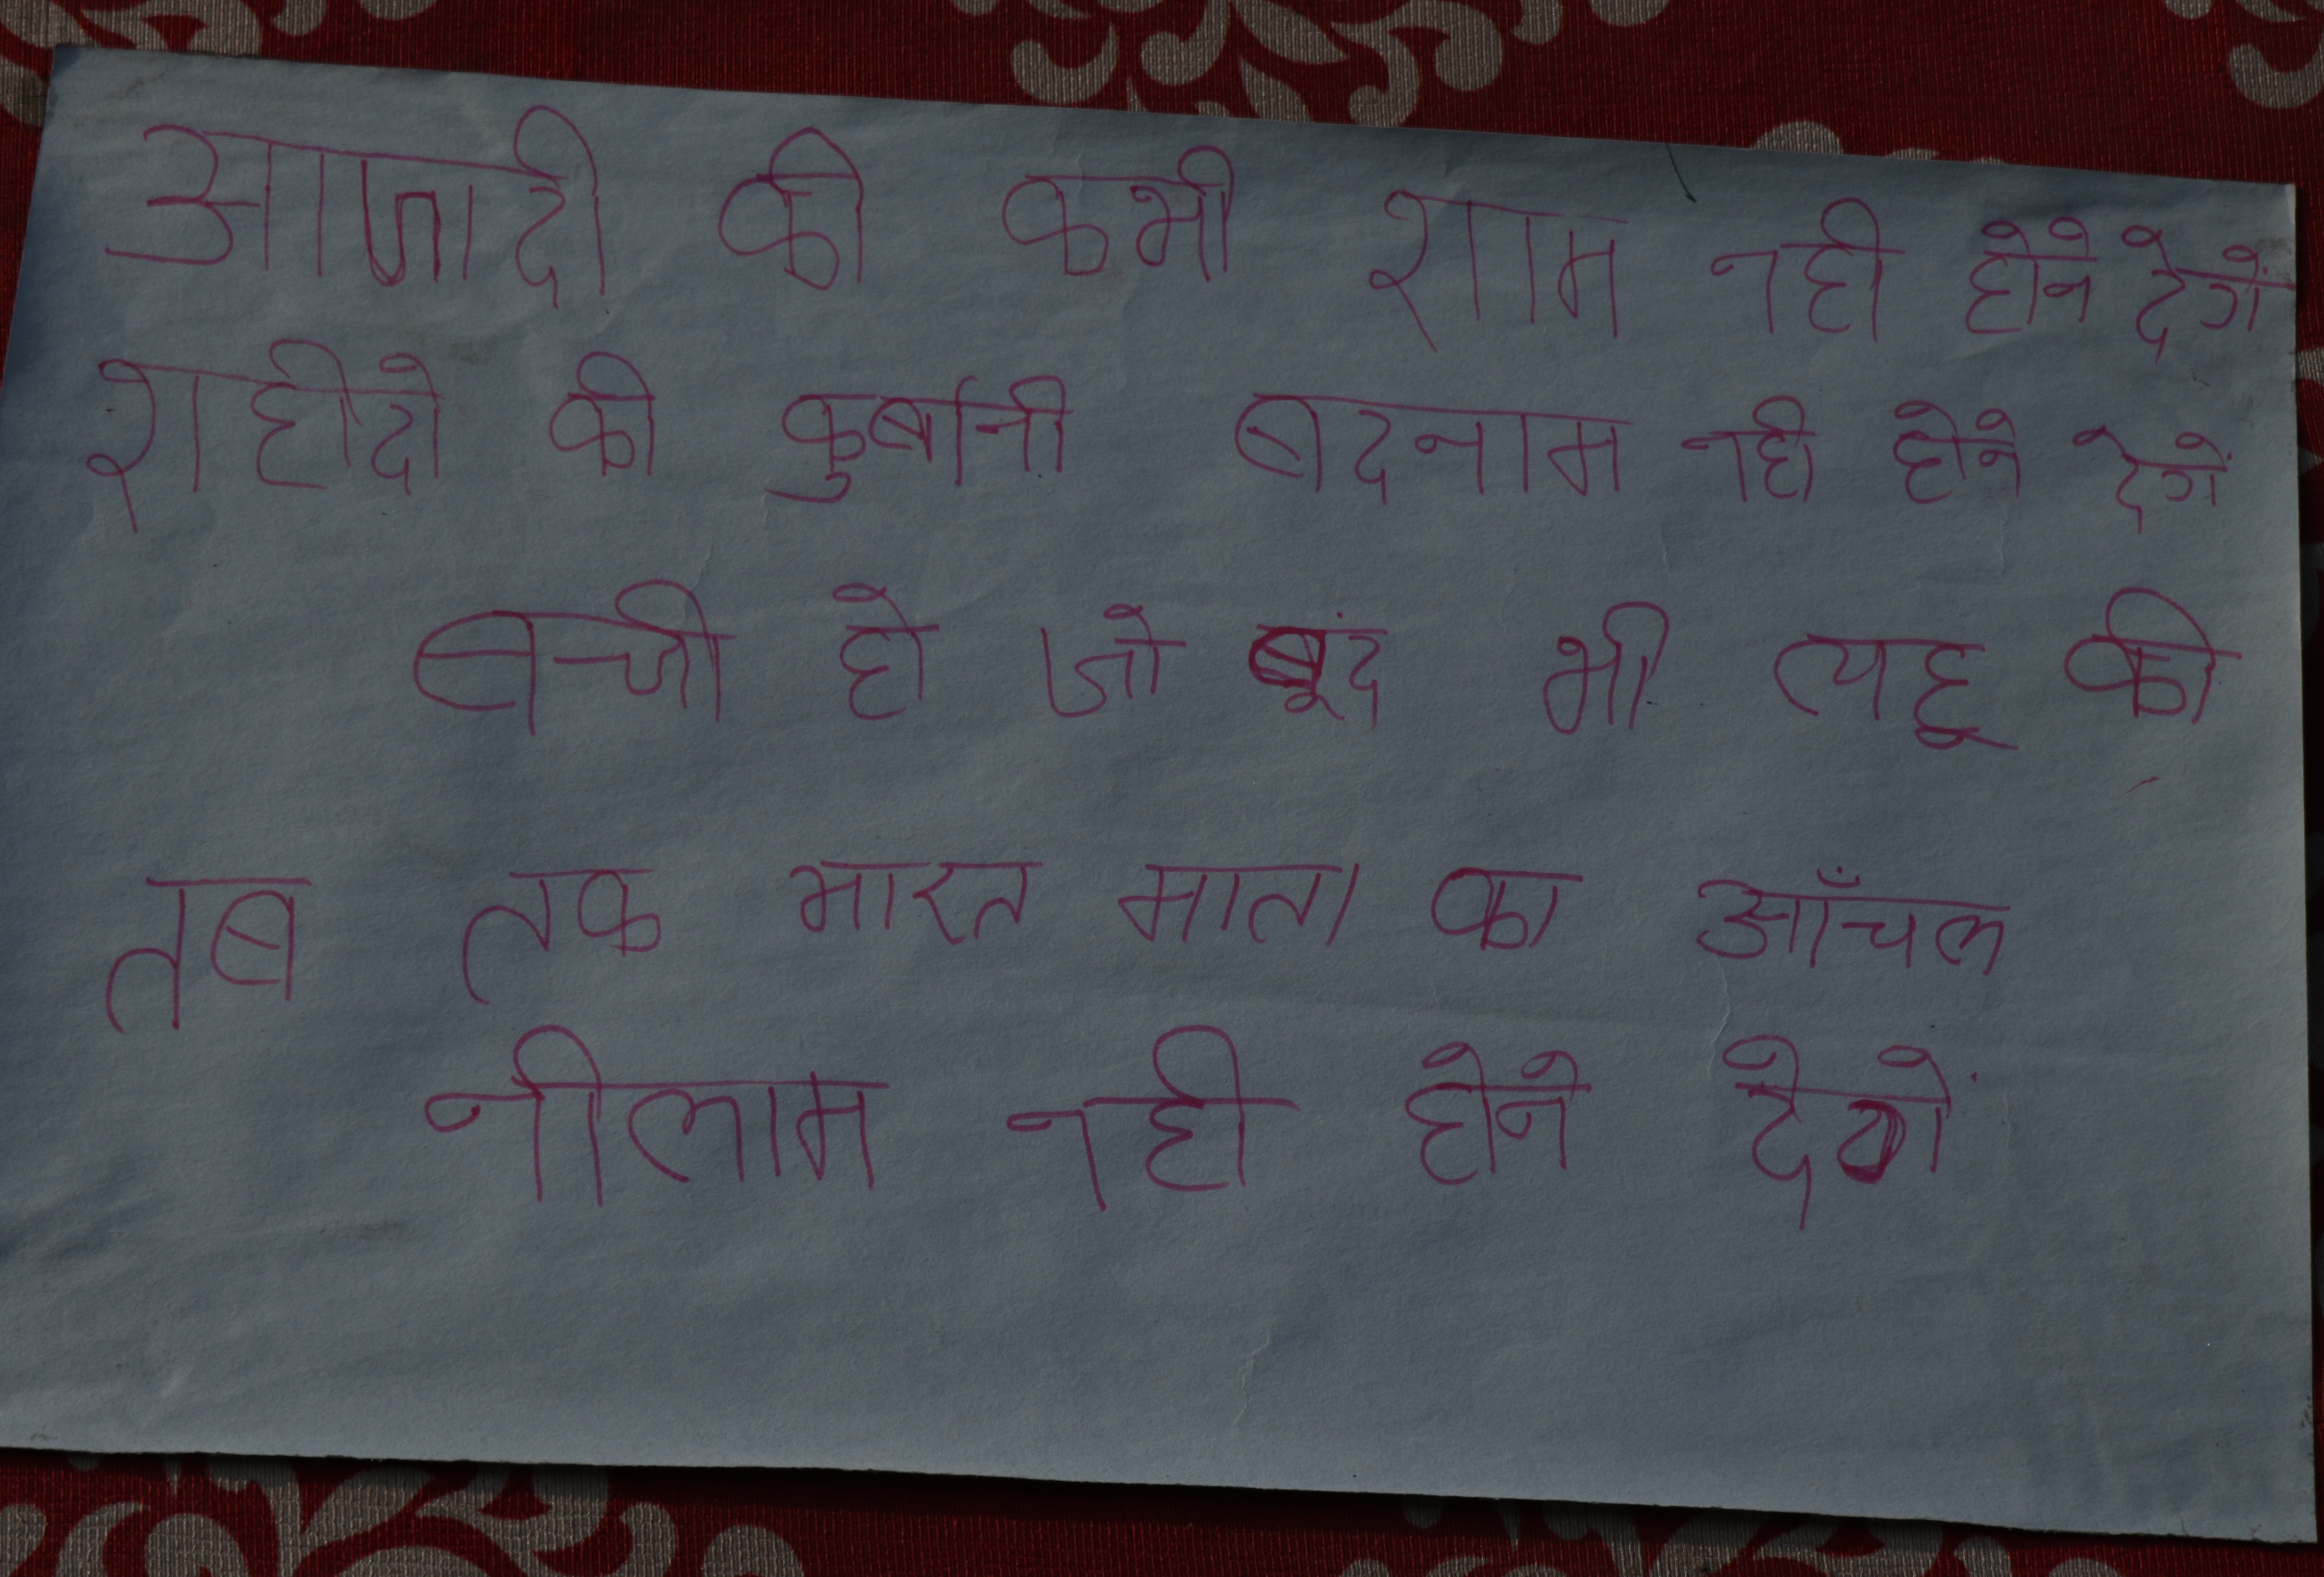 आजादी की कभी शाम नही होने देगें
शहीदो की कुर्बानी बदनाम नही होने देगें
बची हो जो बूंद भी लहू की
तब तक भारत माता का आँचल
नीलाम नही होने देगें